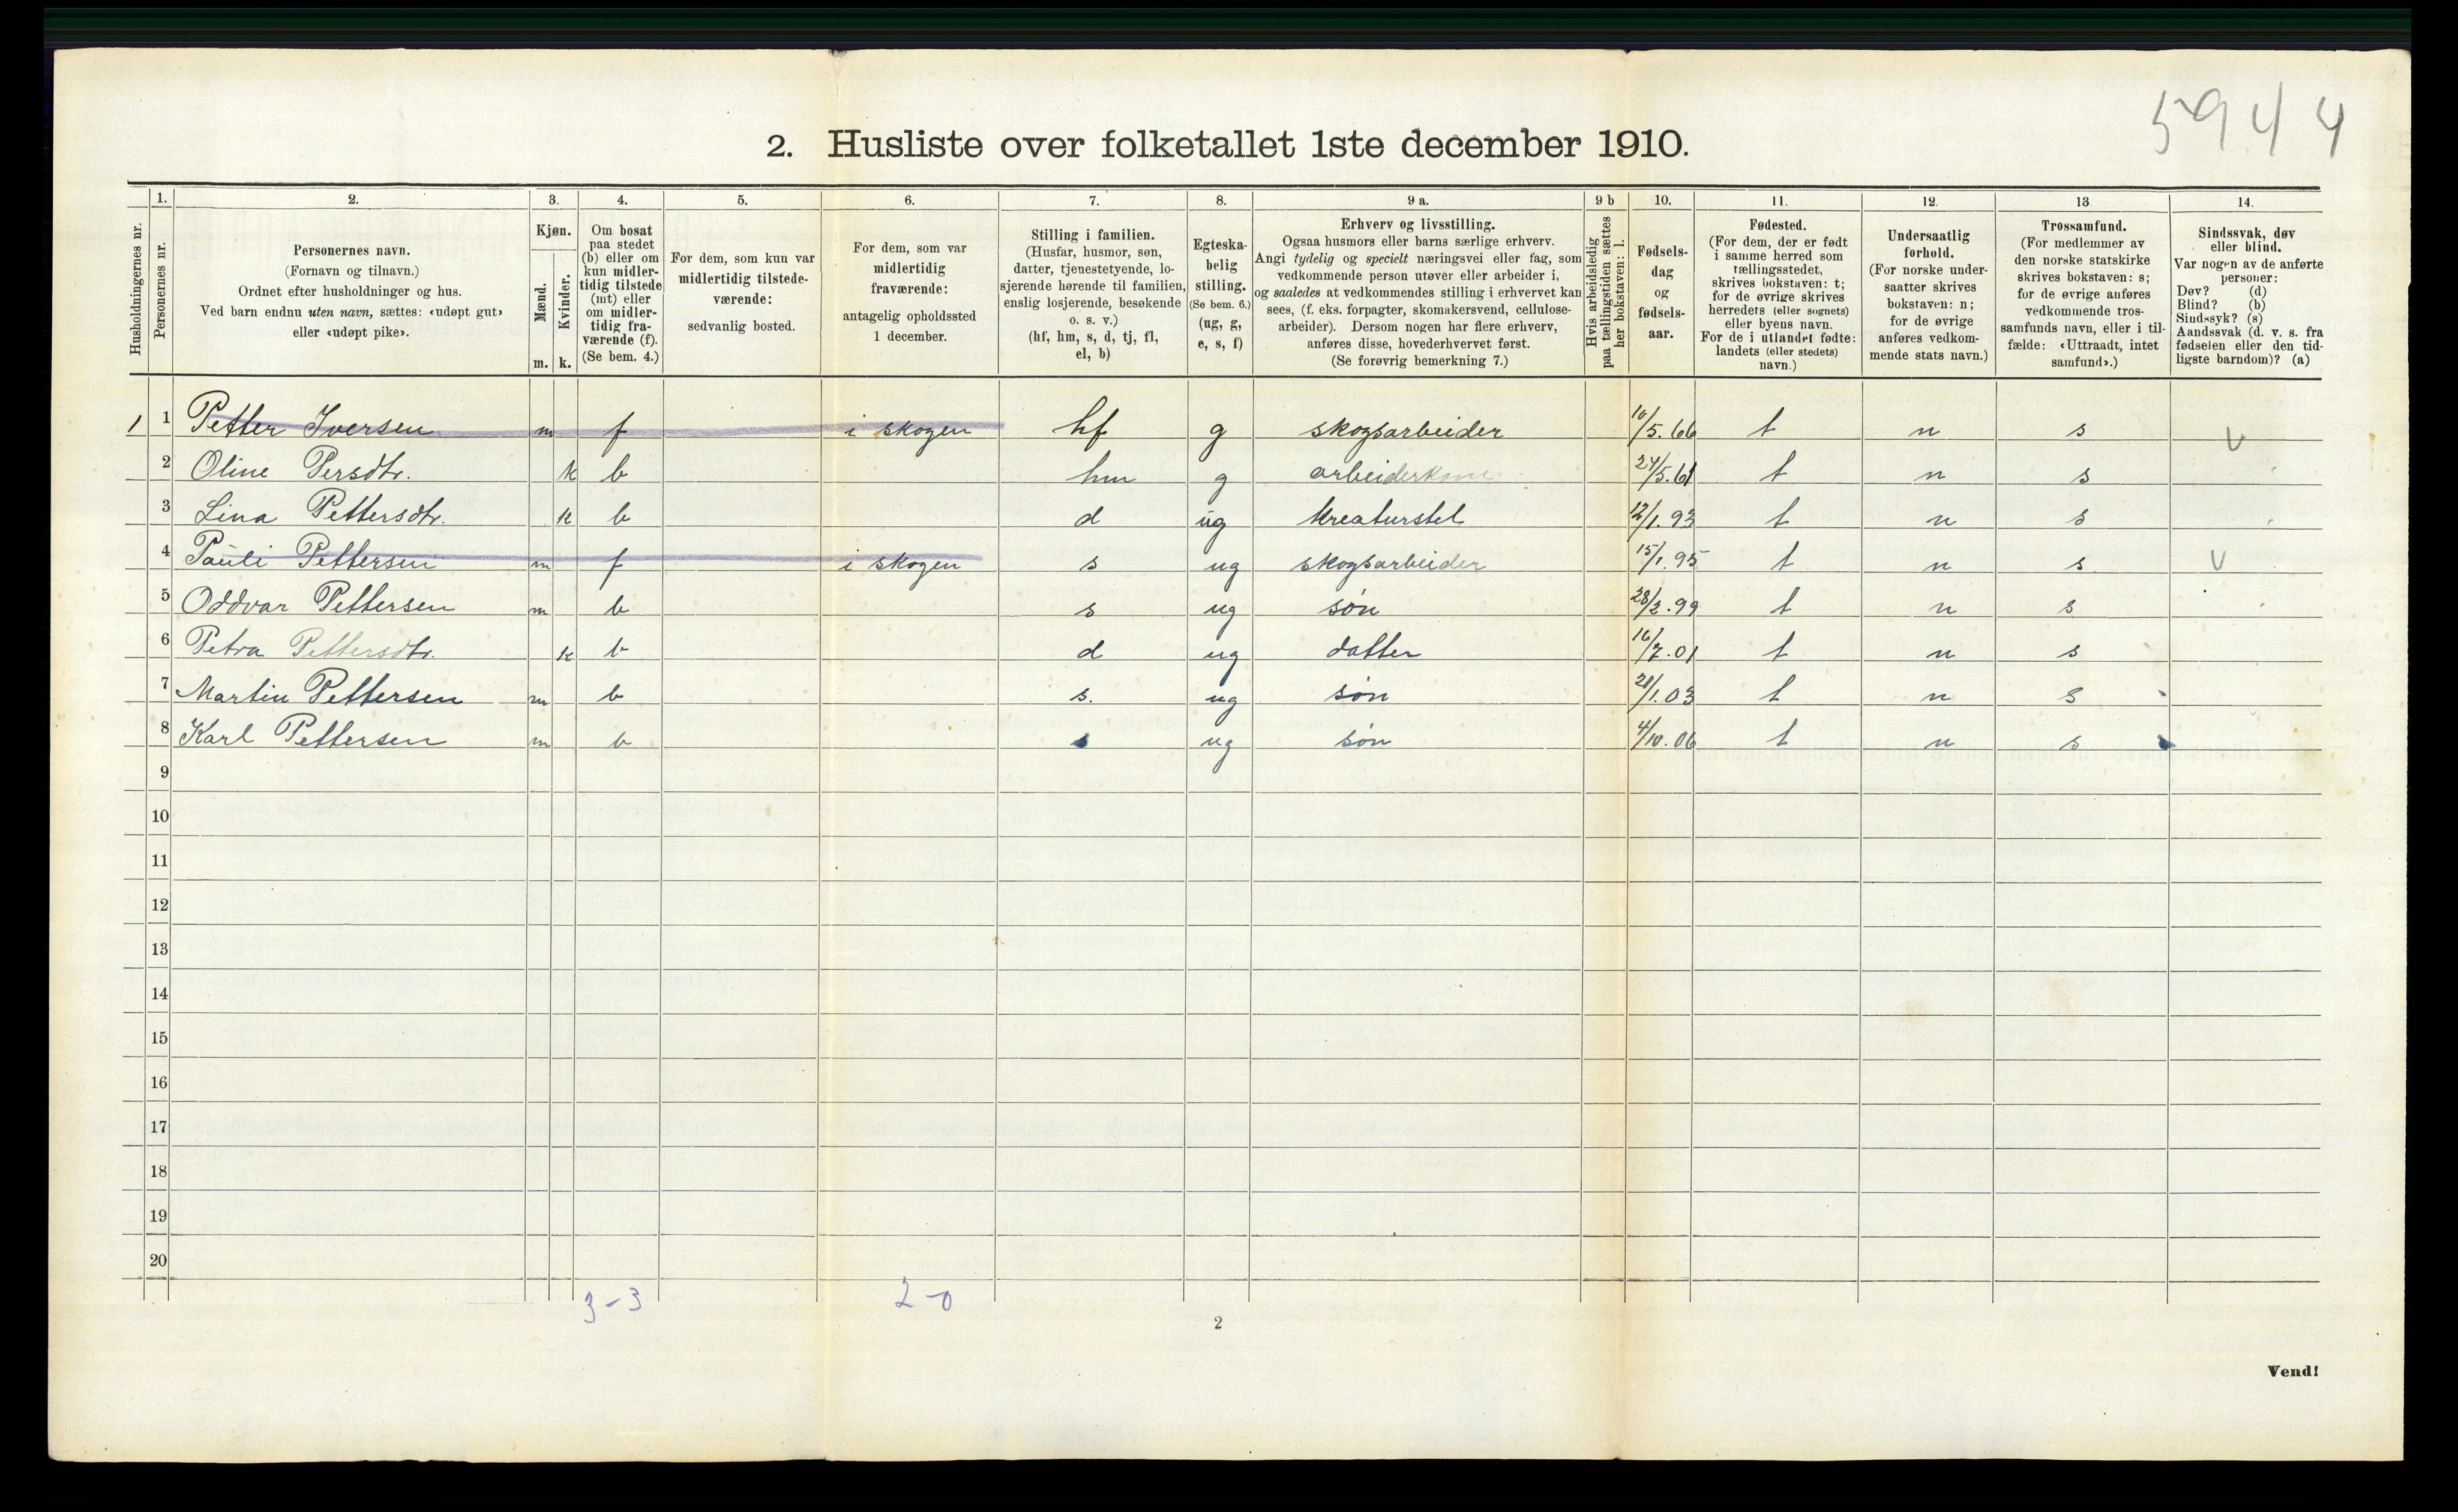 5944
2. Husliste over folketallet 1ste december 1910.
Husholdningernes nr.
1.
Personernes nr.
2.
Personernes navn.
(Fornavn og tilnavn.)
Ordnet efter husholdninger og hus.
Ved barn endnu uten navn, sættes: «udøpt gut»
eller «udøpt pike».
3.
Kjøn.
Mænd.
Kvinder.
m. k.
4.
Om bosat
paa stedet
(b) eller om
kun midler-
tidig tilstede
(mt) eller
om midler-
tidig fra-
værende (f).
(Se bem. 4.)
5.
For dem, som kun var
midlertidig tilstede-
værende:
sedvanlig bosted.
6.
For dem, som var
midlertidig
fraværende:
antagelig opholdssted
1 december.
7.
Stilling i familien.
(Husfar, husmor, søn,
datter, tjenestetyende, lo-
sjerende hørende til familien,
enslig losjerende, besøkende
o. s. v.)
(hf, hm, s, d, tj, fl,
el, b)
8.
Egteska-
belig
stilling.
(Se bem. 6.)
(ug, g,
e, s, f)
9 a.
Erhverv og livsstilling.
Ogsaa husmors eller barns særlige erhverv.
Angi tydelig og specielt næringsvei eller fag, som
vedkommende person utøver eller arbeider i,
og saaledes at vedkommendes stilling i erhvervet kan
sees, (f. eks. forpagter, skomakersvend, cellulose-
arbeider). Dersom nogen har flere erhverv,
anføres disse, hovederhvervet først.
(Se forøvrig bemerkning 7.)
9 b
Hvis arbeidsledig
paa tællingstiden sættes
her bokstaven: l.
10.
Fødsels-
dag
og
fødsels-
aar.
11.
Fødested.
(For dem, der er født
i samme herred som
tællingsstedet,
skrives bokstaven: t;
for de øvrige skrives
herredets (eller sognets)
eller byens navn.
For de i utlandet fødte:
landets (eller stedets)
navn.)
12.
Undersaatlig
forhold.
(For norske under-
saatter skrives
bokstaven: n;
for de øvrige
anføres vedkom-
mende stats navn.)
13
Trossamfund.
(For medlemmer av
den norske statskirke
skrives bokstaven: s;
for de øvrige anføres
vedkommende tros-
samfunds navn, eller i til-
fælde: «Uttraadt, intet
samfund».)
14.
Sindssvak, døv
eller blind.
Var nogen av de anførte
personer:
Døv? (d)
Blind? (b)
Sindssyk? (s)
Aandssvak (d. v. s. fra
fødselen eller den tid-
ligste barndom)? (a)
1 1 Petter Iversen m f i skogen hf g skogsarbeider 10/5.66 t n s v
2 Oline Persdtr. k b hm g arbeiderkone 24/5.61 t n s
3 Lina Pettersdtr. k b d ug kreaturstel 12/1.93 t n s
4 Pauli Pettersen m f i skogen s ug skogsarbeider 15/1.95 t n s v
5 Oddvar Pettersen m b s ug søn 28/2.99 t n s
6 Petra Pettersdtr. k b d ug datter 16/7.01 t n s
7 Martin Pettersen m b s. ug søn 21/1.03 t n s
8 Karl Pettersen m b s ug søn 4/10.06 t n s
9
10
11
12
13
14
15
16
17
18
19
20
3-3 2-0
2
Vend!